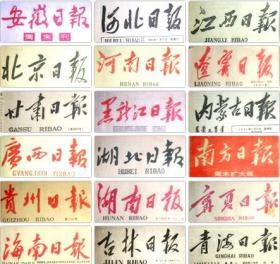 安徽日報
周末刊
河北日报
HEBEI RIBAO
江西日报
JIANGXI RIBAO
北京日报
河南日報
HENAN RIBAO
遼寧日報
LIAONING RIBAO
甘肃日報
GANSU RIBAO
黑龍江日報
内蒙古日報
廣西日報
GVANGJSIH YIZBAO
湖北日報
HUBEI RIBAO
南方日報
周末扩大版
贵州日报
GUIZHOU RIBAO
湖南日報
HUNAN RIBAO
寧夏日報
NINGXIA RIBAO
海南日报
吉林日报
JILIN RIBAO
青海日報
QINGHAI RIBAO